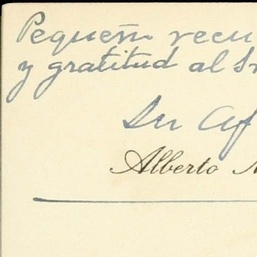 Pequeñ recu
y gratitud al Sr
Su af
Alberto